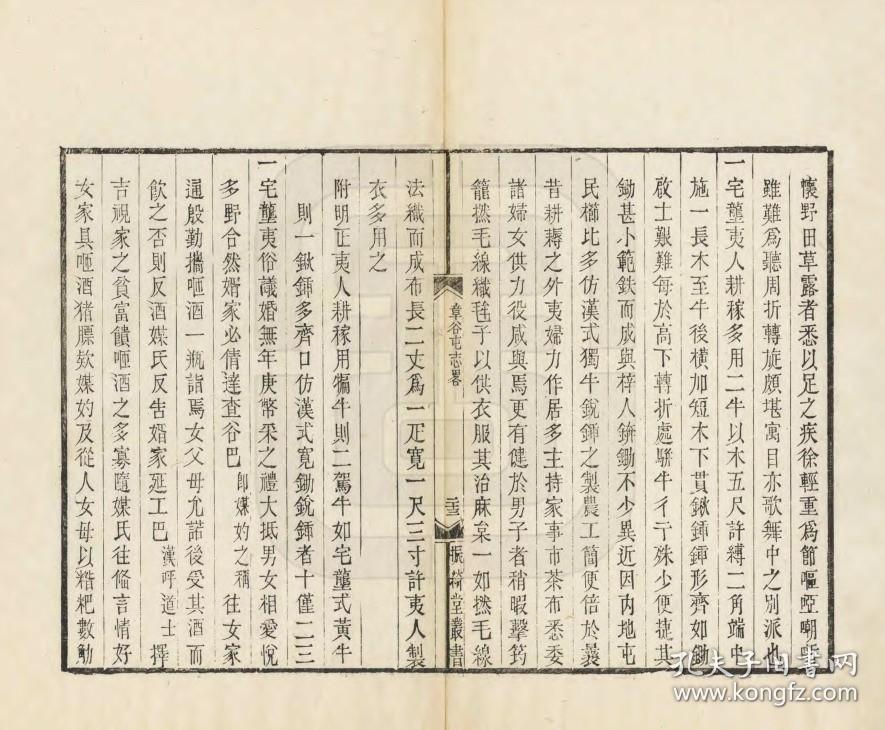 懷野田草露者悉以足之疾徐輕重爲節嘔啞嘲哳
雖難爲聽周折轉旋頗堪寓目亦歌舞中之別派也
一宅壟夷人耕稼多用二牛以木五尺許縛二角端中
施一長木至牛後橫加短木下貫鍬鍾鍾形齊如鋤
啟土艱難每於高下轉折處騈牛彳亍殊少便捷其
鋤甚小範鉄而成與梓人錛鋤不少異近因內地屯
民櫛比多仿漢式獨牛銳鍾之製農工簡便倍於曩
昔耕耨之外夷婦力作居多主持家事市茶布悉委
諸婦女供力役咸與焉更有健於男子者稍暇擊筠
籠撚毛線織毪子以供衣服其治麻枲一如撚毛線
章谷屯志畧
二十三
振綺堂叢書
法織而成布長二丈爲一疋寬一尺三寸許夷人製
衣多用之
附明正夷人耕稼用犏牛則二駕牛如宅壟式黃牛
則一鍬鍾多齊口仿漢式寬鋤銳鍾者十僅二三
一宅壟夷俗議婚無年庚幣采之禮大抵男女相愛悅
多野合然婿家必倩達查谷巴卽媒妁之稱往女家
通殷勤攜咂酒一瓶詣焉女父母允諾後受其酒而
飮之否則反酒媒氏反告婚家延工巴漢呼道士擇
吉視家之貧富饋咂酒之多寡隨媒氏往僃言情好
女家具咂酒猪膘欵媒妁及從人女母以糌粑數觔
孔夫子旧书网
www.kongfz.com